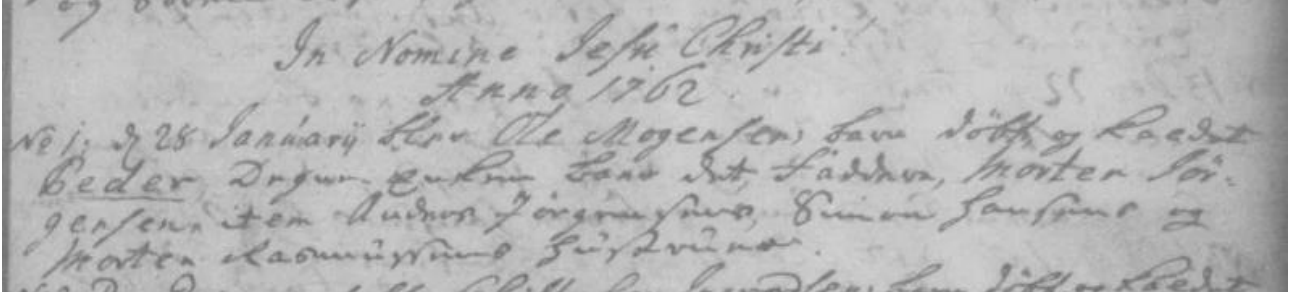 og
In Nomine Jesu Christi
Anno 1762
No 1. d 28 Januarij blev Ole Mogensens barn döbt og kaldet
Peder, Degne Enken bar det, Faddere, Morten Jör-
gensen, item Anders Jörgensens, Simon Hansens og
Morten Rasmussens hustruer.
döbt og kaldet